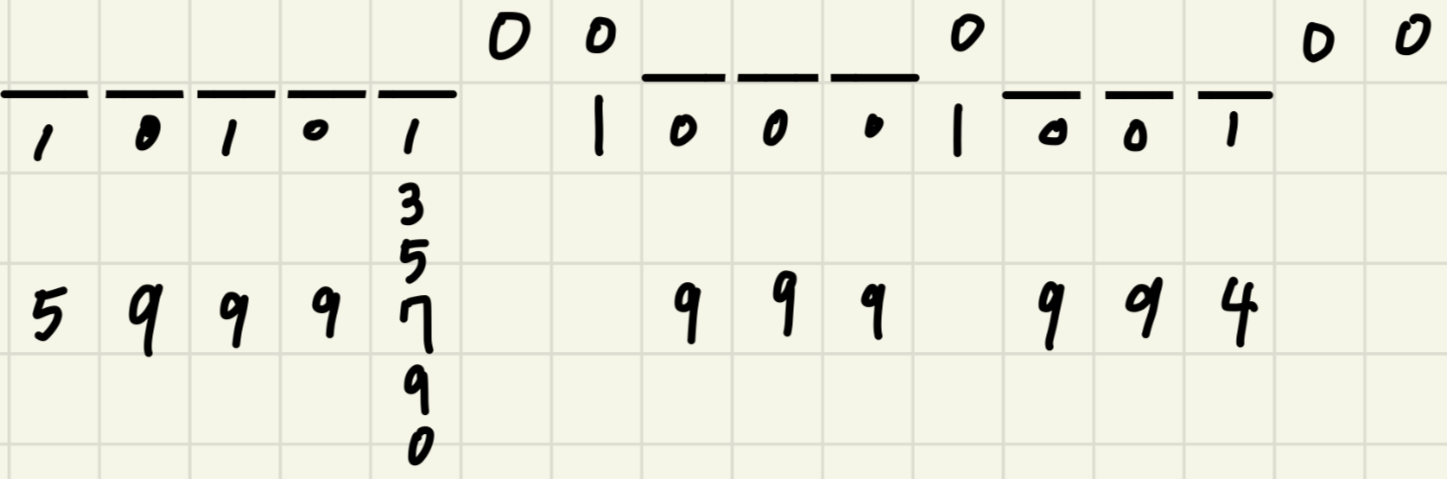 0 0 0 0 0
1 0 1 0 1 1 0 0 0 1 0 0 1
3
5
5 9 9 9 7 9 9 9 9 9 4
9
0